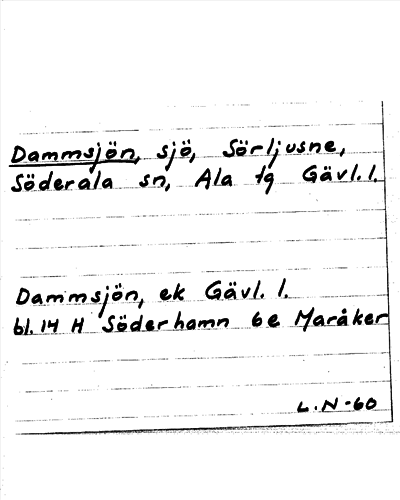 Dammsjön, sjö, Sörljusne,
Söderala sn, Ala tg Gävl. l.
Dammsjön, ek Gävl. l.
bl. 14 H Söderhamn 6e Maråker
L. N -60